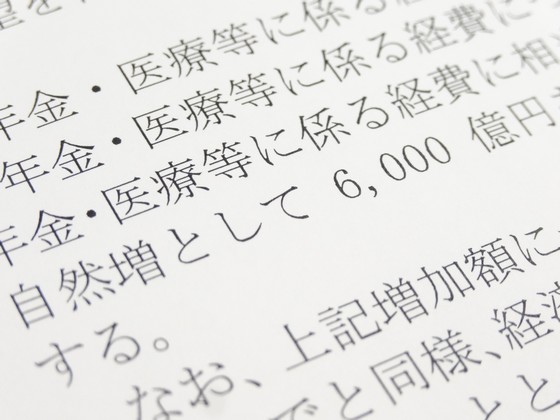 年金・医療等に係る経
年金・医療等に係る経費に
年金・医療等に係る経費に相
自然増として 6,000 億円
する。
なお、上記増加額に
でと同様、経済